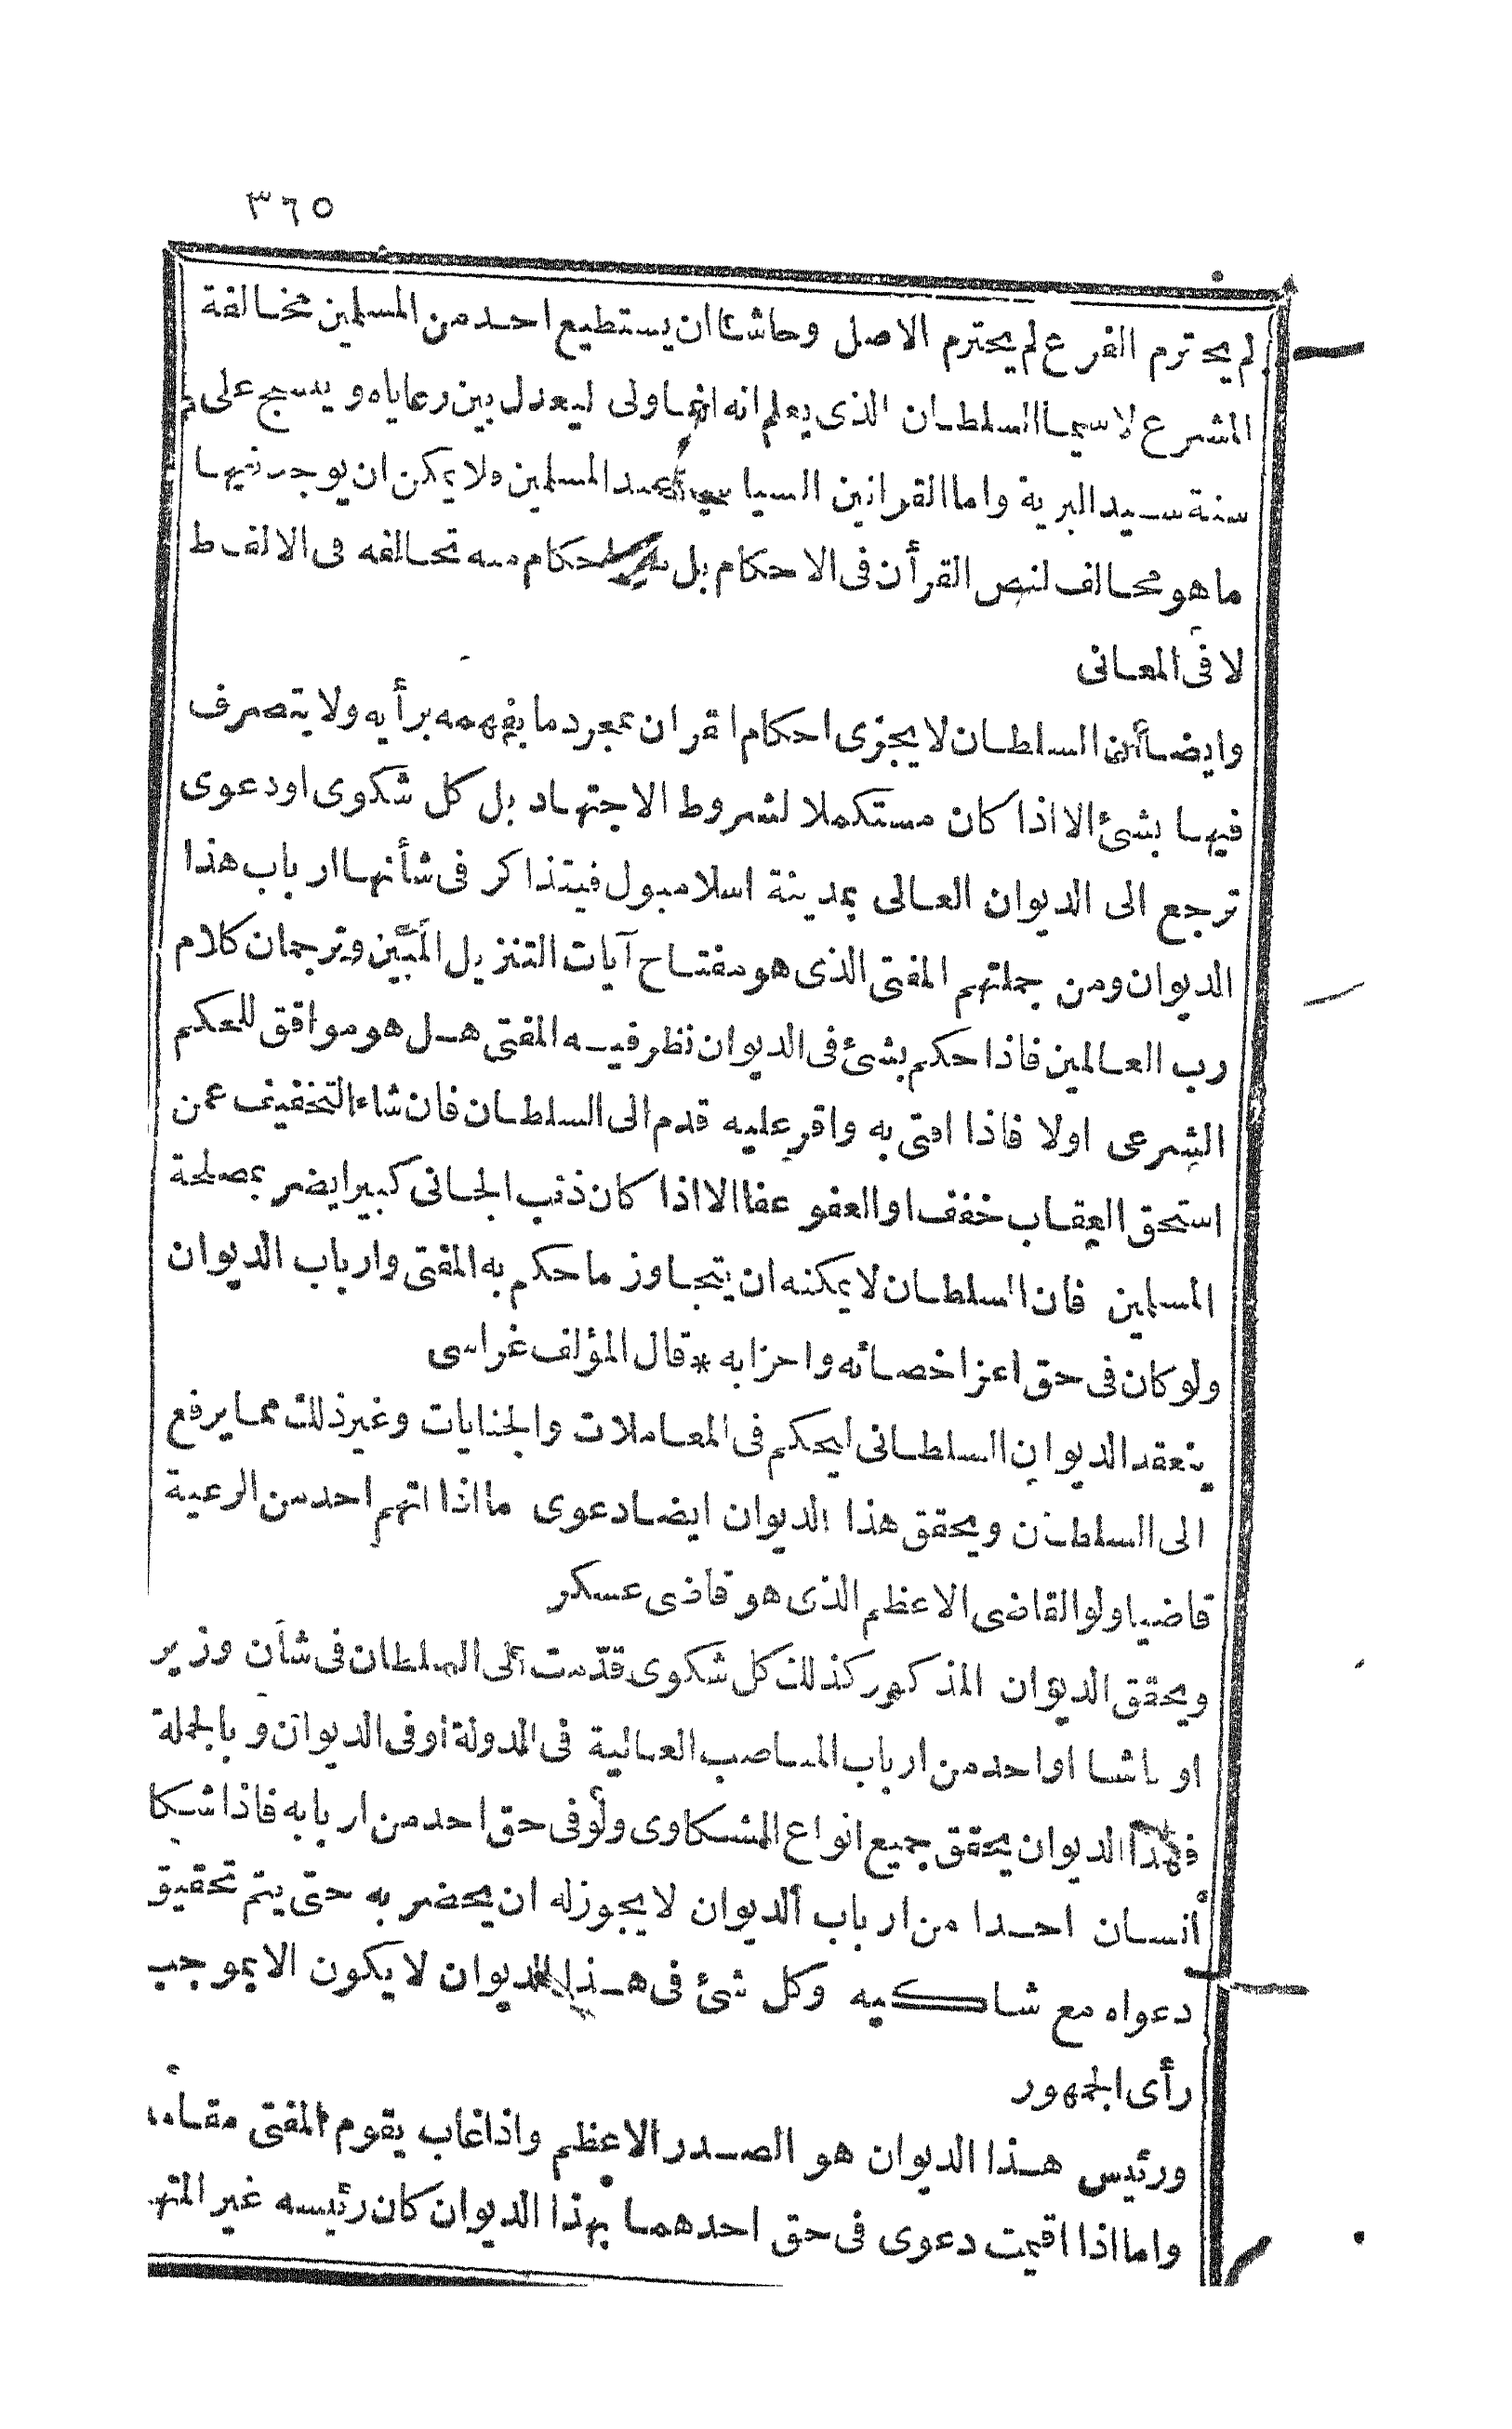 ٣٦٥
لم يحترم الفرع لم يحترم الاصل وحاشا ان يستطيع احد من المسلمين مخالفة
الشرع لاسيما السلطان الذى يعلم انه انما ولى ليعدل بين رعاياه وينسج على
سنة سيد البرية واما القوانين السياسية عند المسلمين ولا يمكن ان يوجد فيها
ما هو مخالف لنص القرأن فى الاحكام بل احكام منه تخالفه فى الالفاظ
لا فى المعانى
وايضا أن السلطان لا يجرى احكام القران بمجرد ما يفهمه برأيه ولا يتصرف
فيها بشئ الا اذا كان مستكملا لشروط الاجتهاد بل كل شكوى او دعوى
ترجع الى الديوان العالى بمدينة اسلامبول فيتذاكر فى شأنها ارباب هذا
الديوان ومن جملتهم المفتى الذى هو مفتاح آيات التنزيل المبين وترجمان كلام
رب العالمين فاذا حكم بشئ فى الديوان نظر فيه المفتى هل هو موافق للحكم
الشرعى اولا فاذا افتى به واقر عليه قدم الى السلطان فان شاء التخفيف عمن
استحق العقاب خفف او العفو عفا الا اذا كان ذنب الجانى كبيرا يضر بمصلحة
المسلمين فان السلطان لا يمكنه ان يتجاوز ما حكم به المفتى وارباب الديوان
ولو كان فى حق اعز اخصائه واحزابه * قال المؤلف غراسى
ينعقد الديوان السلطانى ليحكم فى المعاملات والجنايات وغير ذلك مما يرفع
الى السلطان ويحقق هذا الديوان ايضا دعوى ما اذا اتهم احد من الرعية
قاضيا ولو القاضى الاعظم الذى هو قاضى عسكر
ويحقق الديوان المذكور كذلك كل شكوى قدّمت الى السلطان فى شأن وزير
او باشا او احد من ارباب المناصب العالية فى الدولة او فى الديوان وبالجملة
فهذا الديوان يحقق جميع انواع المشكاوى ولو فى حق احد من اربابه فاذا شكا
أنسان احدا من ارباب الديوان لا يجوز له ان يحضر به حتى يتم تحقيق
دعواه مع شاكيه وكل شئ فى هذا الديوان لا يكون الا بموجب
رأى الجمهور
ورئيس هذا الديوان هو الصدر الاعظم واذا غاب يقوم المفتى مقامه
واما اذا اقيمت دعوى فى حق احدهما بهذا الديوان كان رئيسه غير